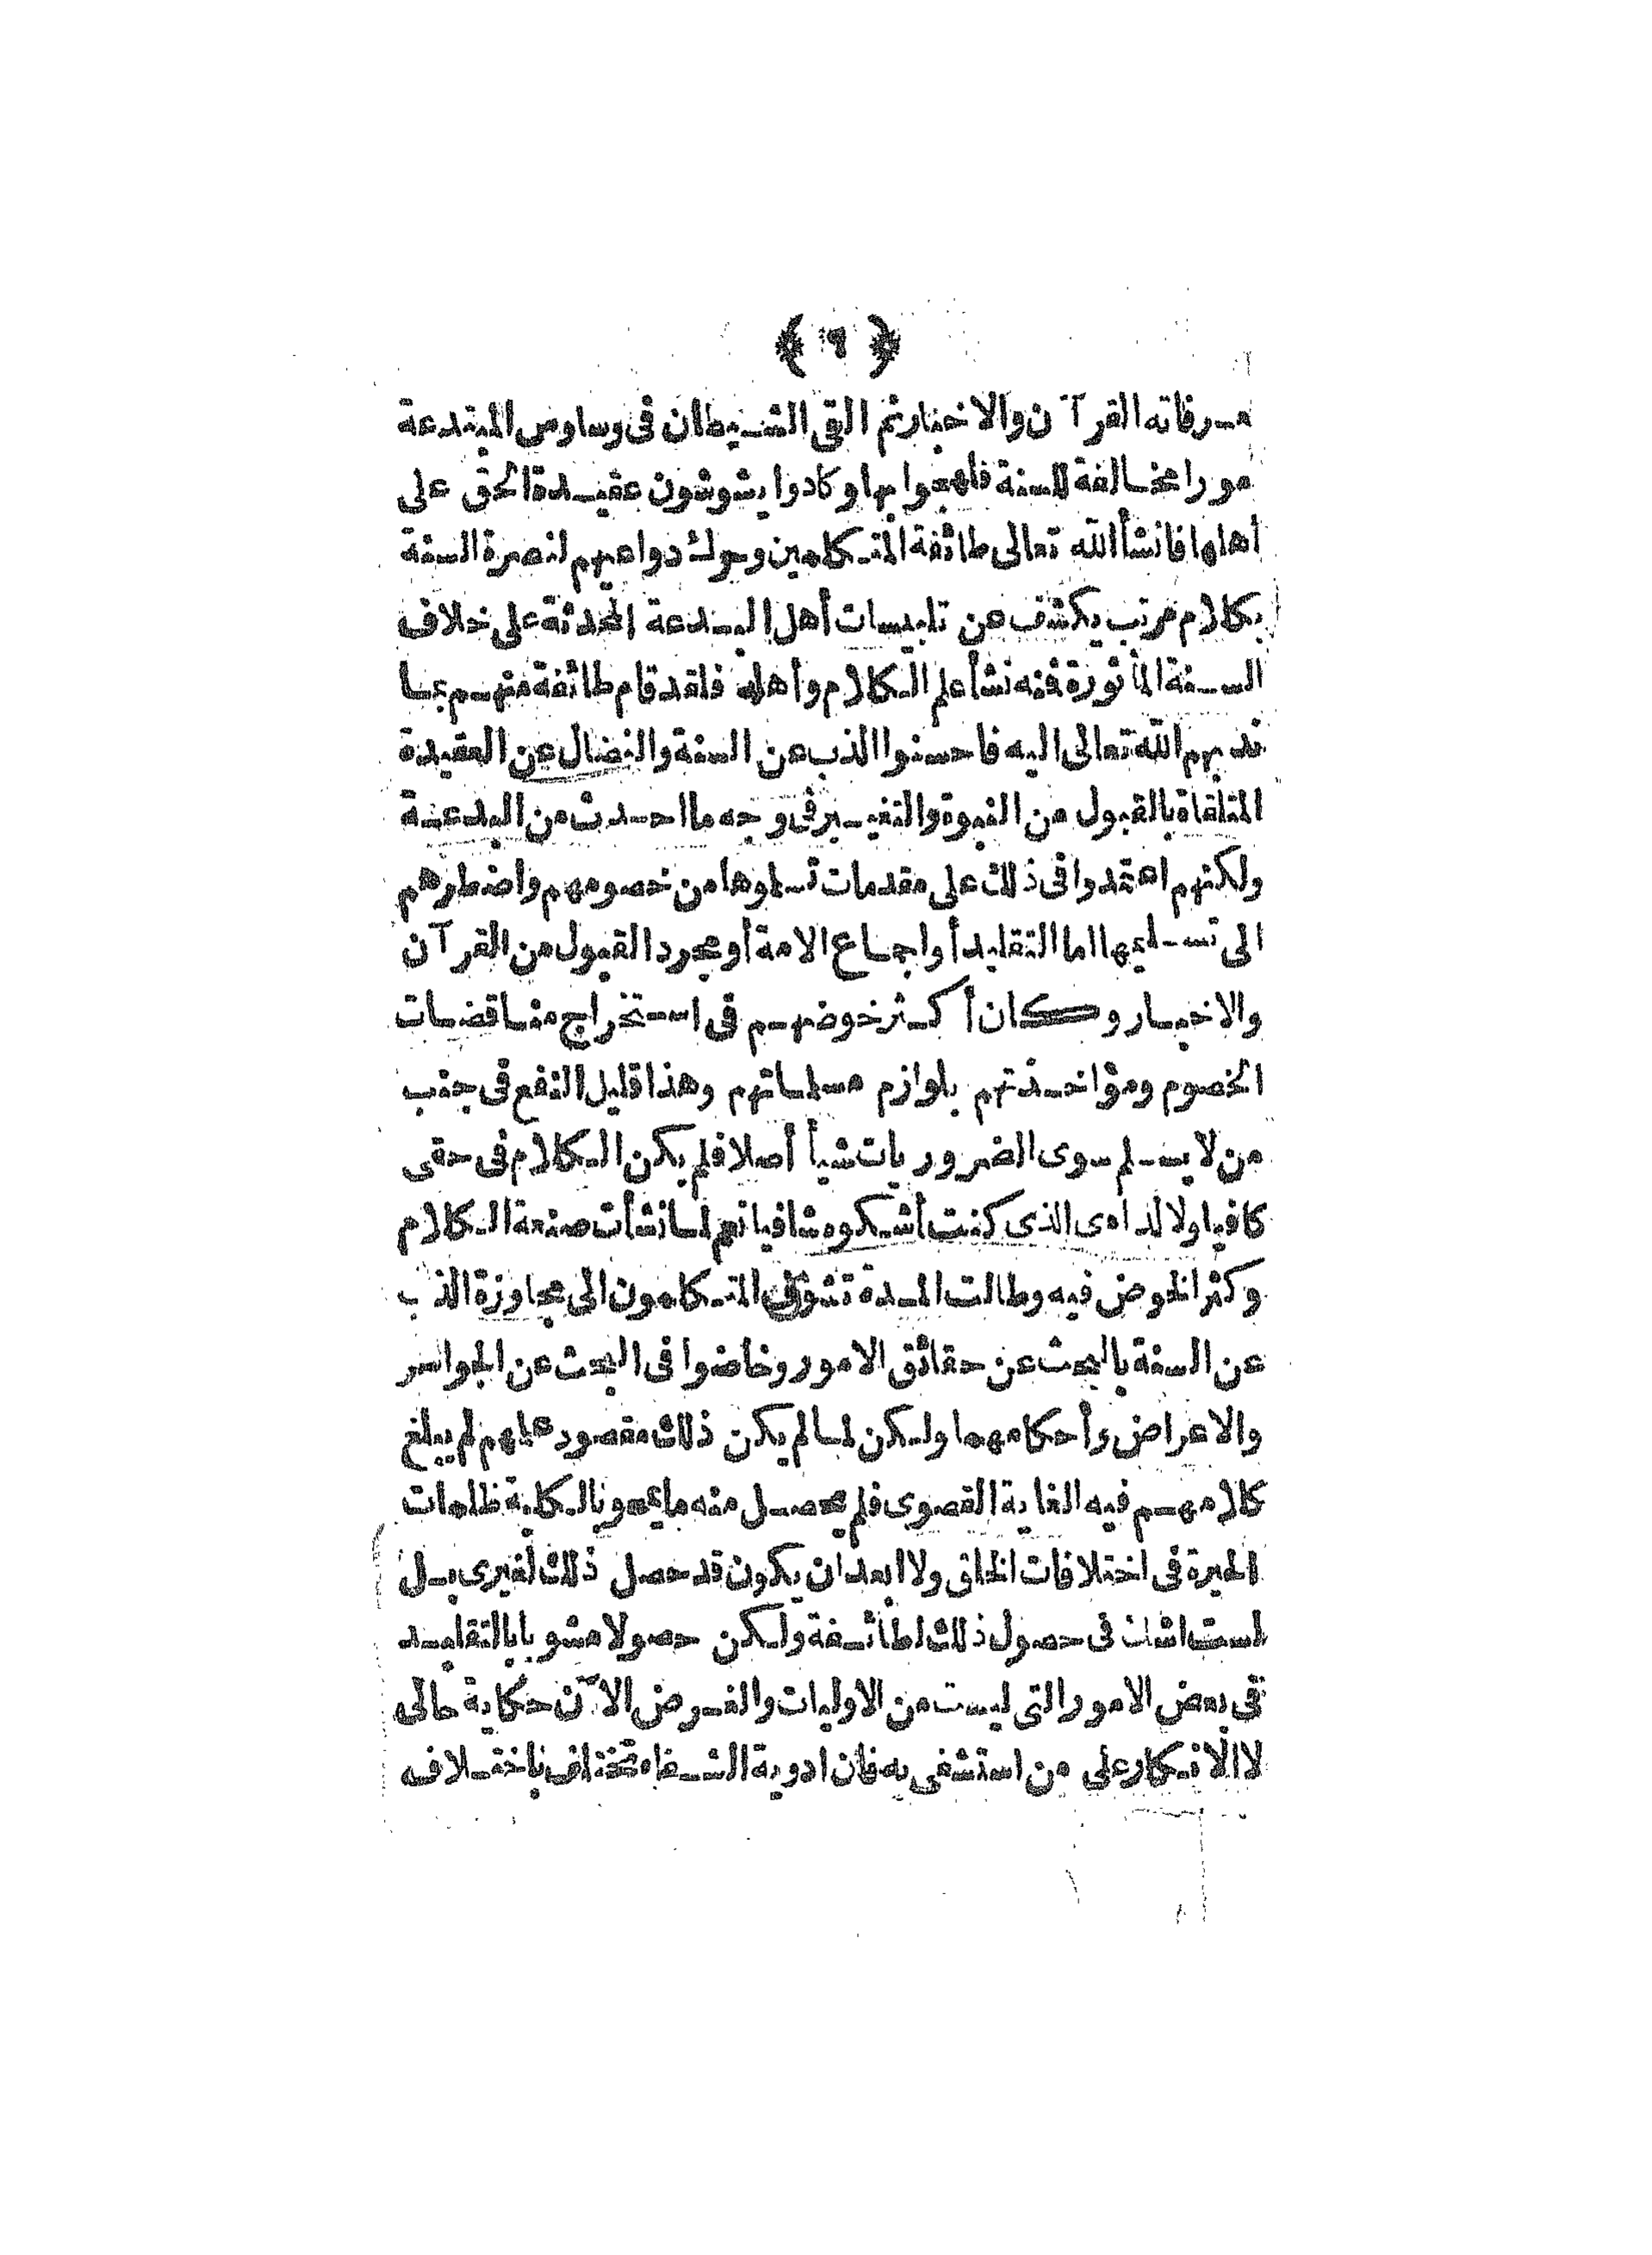 ﴿ ٩ ﴾
معرفاته القرآن والاخبار ثم القى الشيطان فى وساوس المبتدعة
مورا مخالفة للسنة فلهجوا بها وكادوا يشوشون عقيدة الحق على
أهلها فانشأ الله تعالى طائفة المتكلمين وحرك دواعيهم لنصرة السنة
بكلام مرتب يكشف عن تلبيسات أهل البدعة المحدثة على خلاف
السنة المأثورة فمنه نشأ علم الكلام وأهله فلقد قام طائفة منهم بما
ندبهم الله تعالى اليه فاحسنوا الذب عن السنة والنضال عن العقيدة
المتلقاة بالقبول من النبوة والتغيير فى وجه ما احدث من البدعة
ولكنهم اعتمدوا فى ذلك على مقدمات تسلموها من خصومهم واضطرهم
الى تسليمها اما التقليد أو اجماع الامة أو مجرد القبول من القرآن
والاخبار وكان أكثر خوضهم فى استخراج مناقضات
الخصوم ومؤاخذتهم بلوازم مسلماتهم وهذا قليل النفع فى جنب
من لا يسلم سوى الضروريات شيأ أصلا فلم يكن الكلام فى حقى
كافيا ولا لدائى الذى كنت أشكوه شافيا نعم لما نشأت صنعة الكلام
وكثر الخوض فيه وطالت المدة تشوق المتكلمون الى مجاوزة الذب
عن السنة بالبحث عن حقائق الامور وخاضوا فى البحث عن الجواهر
والاعراض وأحكامهما ولكن لما لم يكن ذلك مقصود علمهم لم يبلغ
كلامهم فيه الغاية القصوى فلم يحصل منه ما يمحو بالكلية ظلمات
الحيرة فى اختلافات الخلق ولا ابعد ان يكون قد حصل ذلك لغيرى بل
لست اشك فى حصول ذلك لطائفة ولكن حصولا مشوبا بالتقليد
فى بعض الامور التى ليست من الاوليات والغرض الآن حكاية حالى
لا الانكار على من استشفى به فان ادوية الشفاء تختلف باختلاف